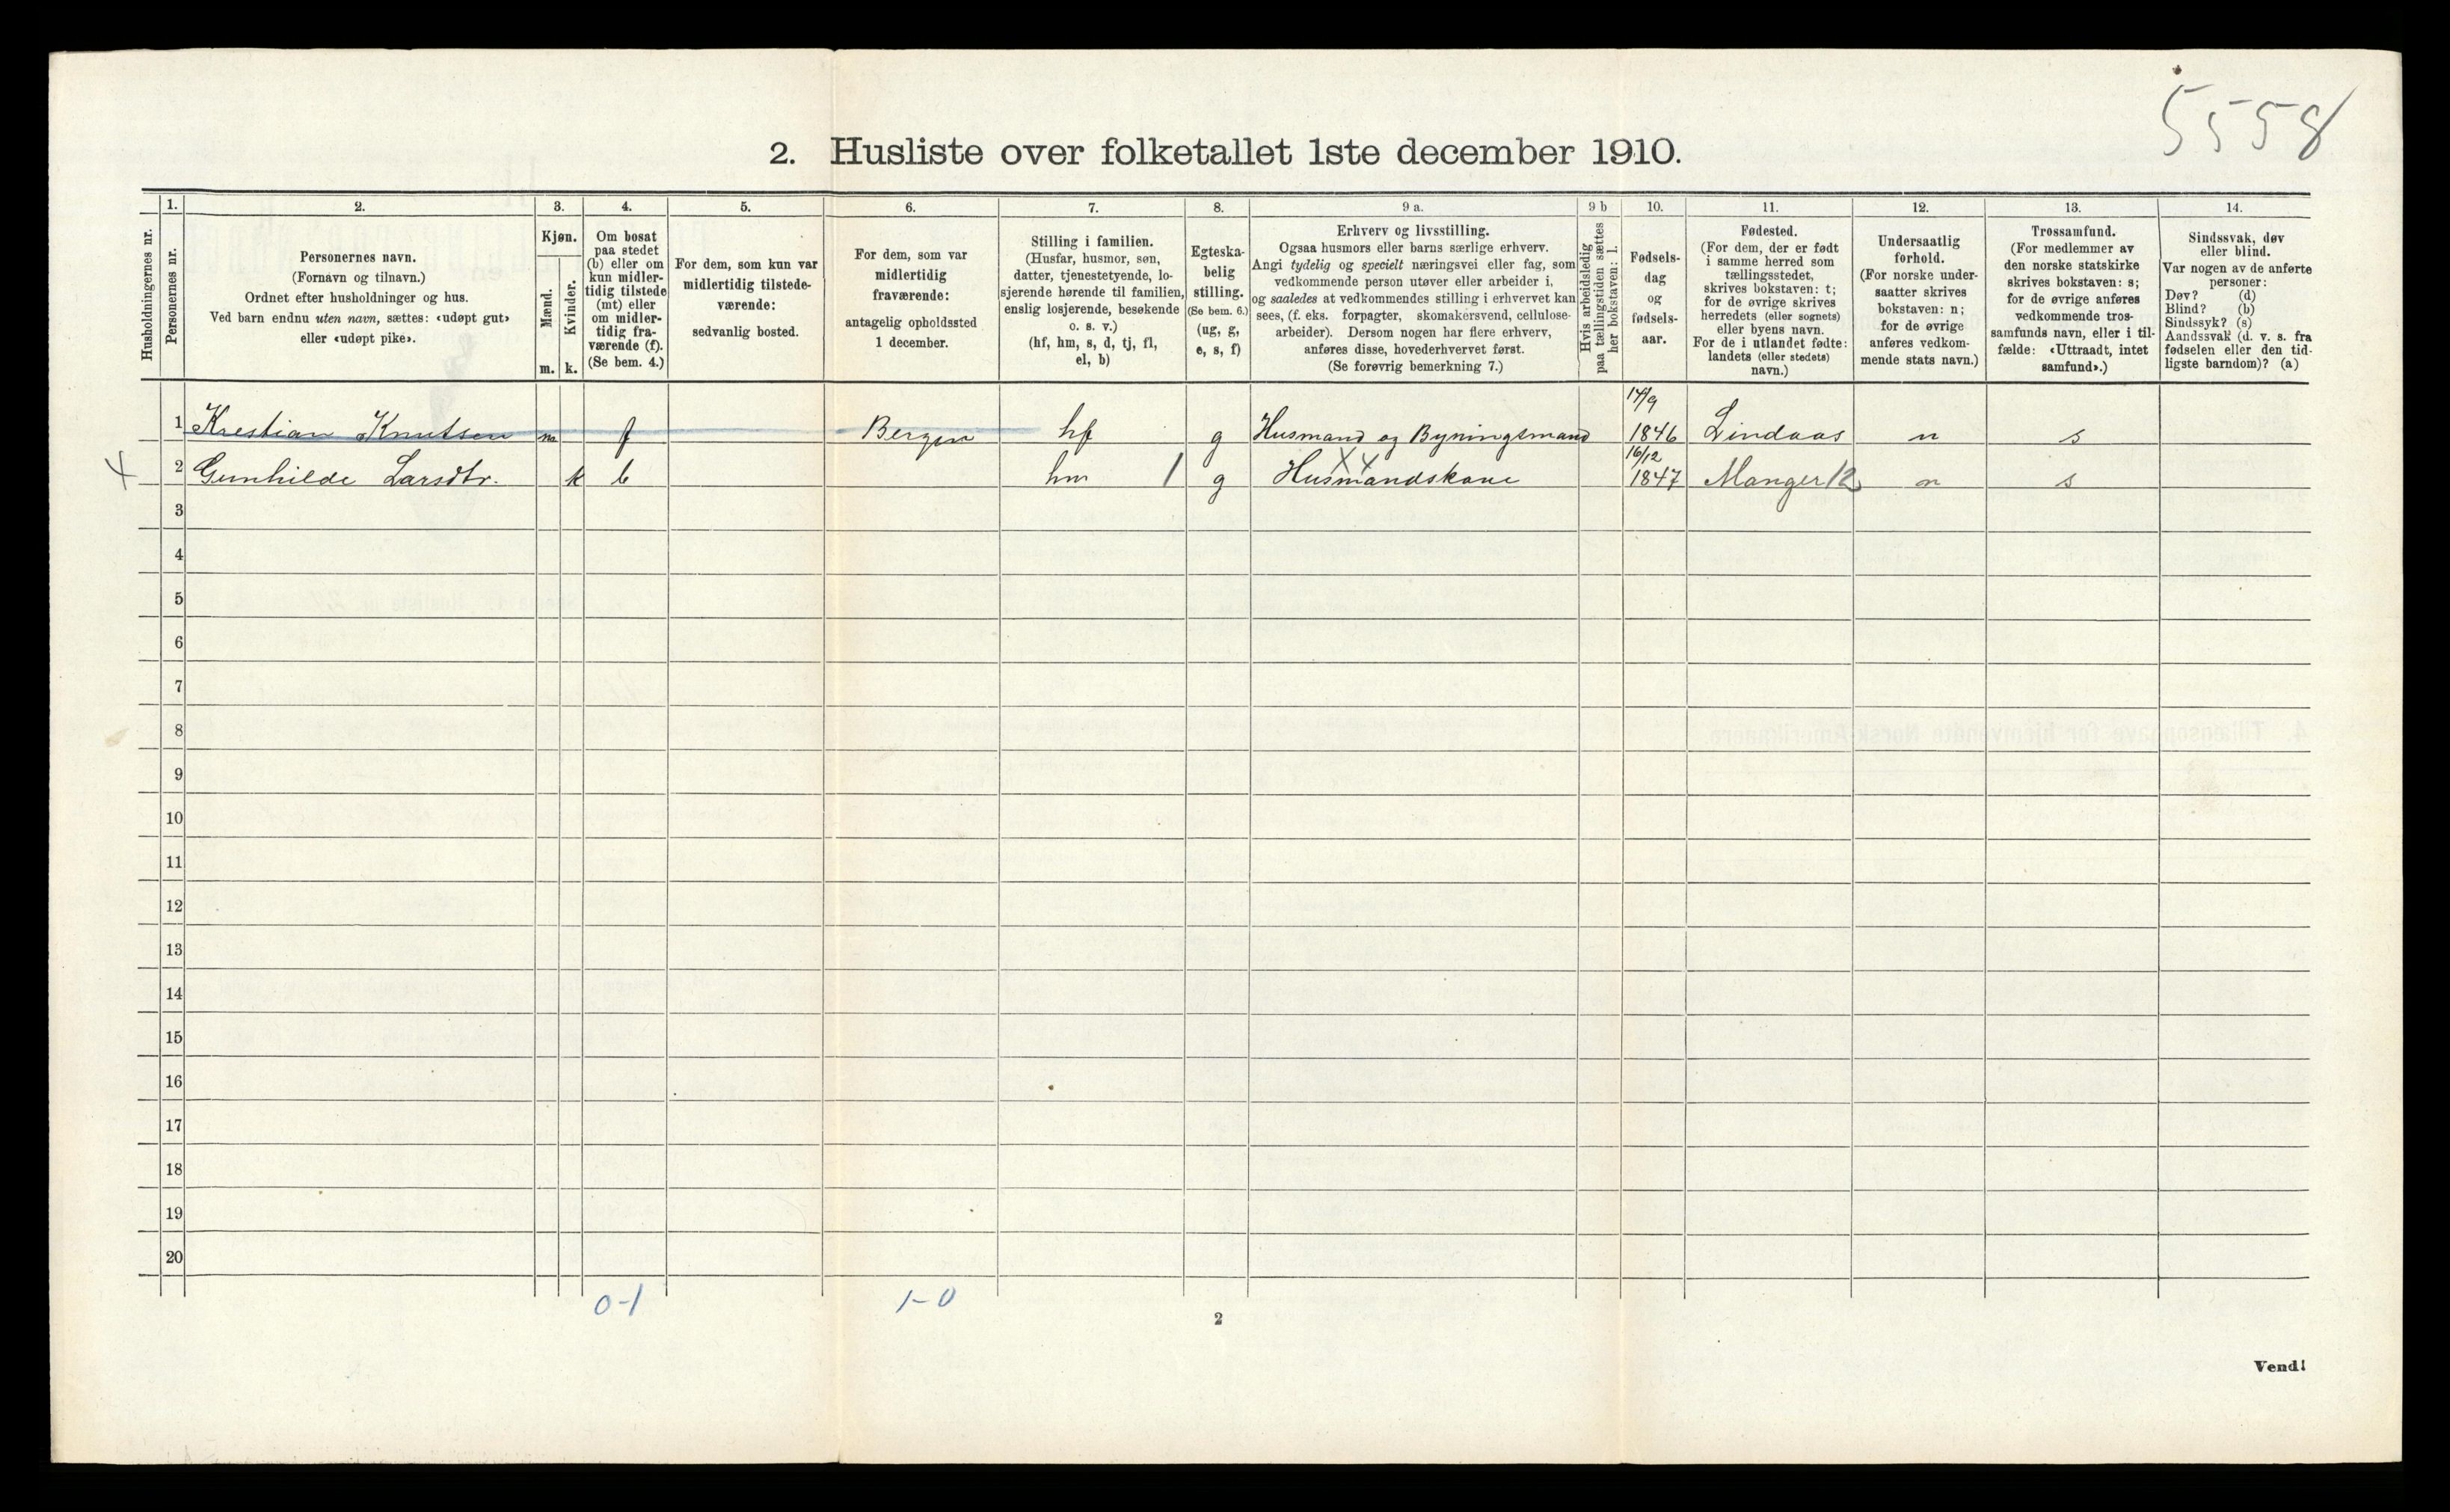 5558
2. Husliste over folketallet 1ste december 1910.
Husholdningernes nr.
1.
Personernes nr.
2.
Personernes navn.
(Fornavn og tilnavn.)
Ordnet efter husholdninger og hus.
Ved barn endnu uten navn, sættes: «udøpt gut»
eller «udøpt pike».
3.
Kjøn.
Mænd.
Kvinder.
m. k.
4.
Om bosat
paa stedet
(b) eller om
kun midler-
tidig tilstede
(mt) eller
om midler-
tidig fra-
værende (f).
(Se bem. 4.)
5.
For dem, som kun var
midlertidig tilstede-
værende:
sedvanlig bosted.
6.
For dem, som var
midlertidig
fraværende:
antagelig opholdssted
1 december.
7.
Stilling i familien.
(Husfar, husmor, søn,
datter, tjenestetyende, lo-
sjerende hørende til familien,
enslig losjerende, besøkende
o. s. v.)
(hf, hm, s, d, tj, fl,
el, b)
8.
Egteska-
belig
stilling.
(Se bem. 6.)
(ug, g,
e, s, f)
9 a.
Erhverv og livsstilling.
Ogsaa husmors eller barns særlige erhverv.
Angi tydelig og specielt næringsvei eller fag, som
vedkommende person utøver eller arbeider i,
og saaledes at vedkommendes stilling i erhvervet kan
sees, (f. eks. forpagter, skomakersvend, cellulose-
arbeider). Dersom nogen har flere erhverv,
anføres disse, hovederhvervet først.
(Se forøvrig bemerkning 7.)
9 b
Hvis arbeidsledig
paa tællingstiden sættes
her bokstaven: l.
10.
Fødsels-
dag
og
fødsels-
aar.
11.
Fødested.
(For dem, der er født
i samme herred som
tællingsstedet,
skrives bokstaven: t;
for de øvrige skrives
herredets (eller sognets)
eller byens navn.
For de i utlandet fødte:
landets (eller stedets)
navn.)
12.
Undersaatlig
forhold.
(For norske under-
saatter skrives
bokstaven: n;
for de øvrige
anføres vedkom-
mende stats navn.)
13.
Trossamfund.
(For medlemmer av
den norske statskirke
skrives bokstaven: s;
for de øvrige anføres
vedkommende tros-
samfunds navn, eller i til-
fælde: «Uttraadt, intet
samfund».)
14.
Sindssvak, døv
eller blind.
Var nogen av de anførte
personer:
Døv? (d)
Blind? (b)
Sindssyk? (s)
Aandssvak (d. v. s. fra
fødselen eller den tid-
ligste barndom)? (a)
1 Krestian Knutsen m f Bergen hf g Husmand og Byningsmand 14/9 1846 Lindaas n s
X 2 Gunhilde Larsdtr. k b hm 1 g Husmandskone X4 16/12 1847 Manger 12 n s
3
4
5
6
7
8
9
10
11
12
13
14
15
16
17
18
19
20
0-1 1-0
2
Vend!